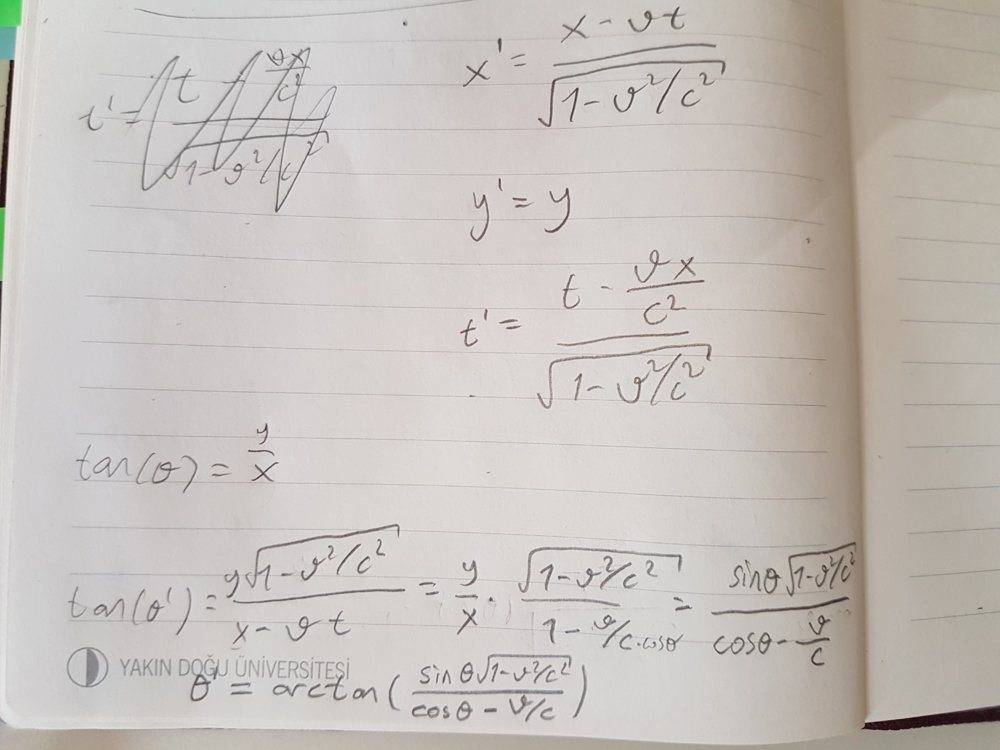 t' = t - ϑx/c² / √1-ϑ²/c²
x' = x - ϑt / √1-ϑ²/c²
y' = y
t' = t - ϑx/c² / √1-ϑ²/c²
tan(θ) = y/x
tan(θ') = y√1-ϑ²/c² / x-ϑt = y/x · √1-ϑ²/c² / 1-ϑ/c·cosθ = sinθ√1-ϑ²/c² / cosθ-ϑ/c
YAKIN DOĞU ÜNİVERSİTESİ
θ' = arctan(sinθ√1-ϑ²/c² / cosθ-ϑ/c)